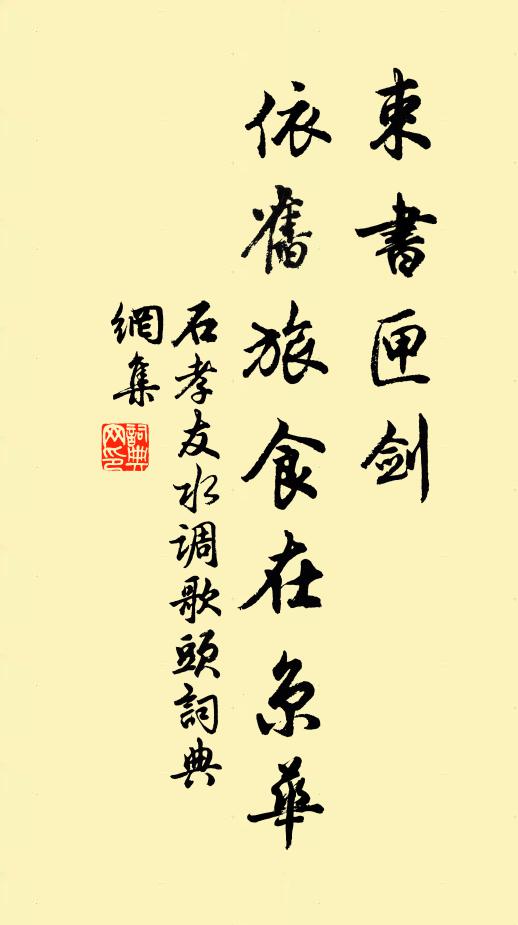 束書匣劍
依舊旅食在京華
石孝友水调歌頭詞典
網集
詞典
网印